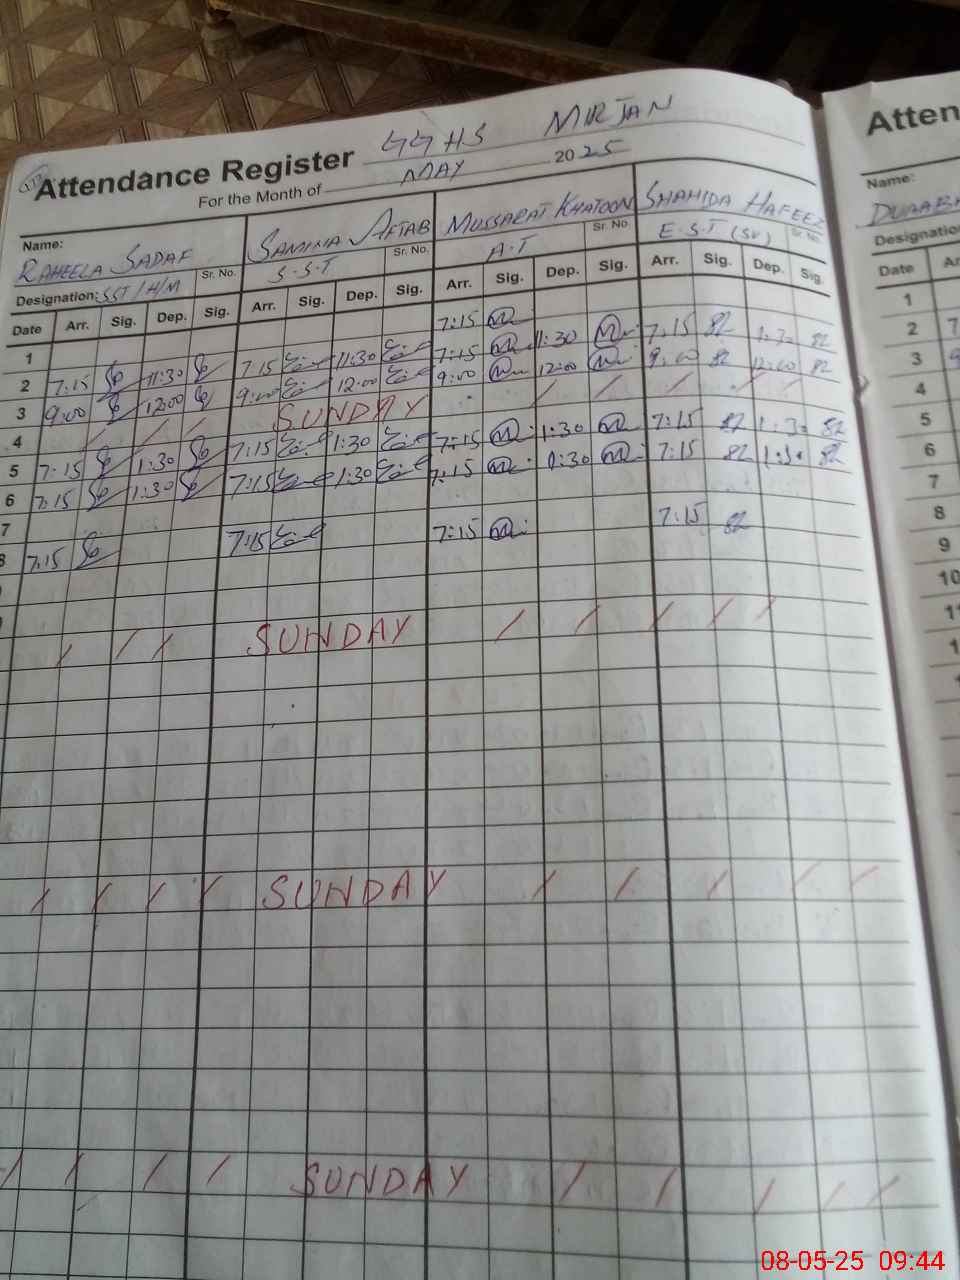 Attendance Register GGHS MIRJAN
For the Month of MAY 2025
Name: RAHEELA SADAF SAMINA AFTAB MUSSARAT KHATOON SHAHIDA HAFEEZ
Designation: SST/H/M Sr. No. S.S.T Sr. No. A.T Sr. No. E.S.T (Sr) Sr. No.
Date Arr. Sig. Dep. Sig. Arr. Sig. Dep. Sig. Arr. Sig. Dep. Sig. Arr. Sig. Dep. Sig.
7:15
1
2 7:15 11:30 7:15 11:30 7:15 11:30 7:15
3 9:00 12:00 9:00 12:00 9:00 12:00 9:00 12:00
4 SUNDAY
5 7:15 1:30 7:15 1:30 7:15 1:30 7:15 1:30
6 7:15 1:30 7:15 1:30 7:15 1:30 7:15 1:30
7
8 7:15 7:15 7:15 7:15
SUNDAY
SUNDAY
SUNDAY
Atten
Name:
Designatio
Date
1
2 7
3 9
4
5
6
7
8
9
10
08-05-25 09:44